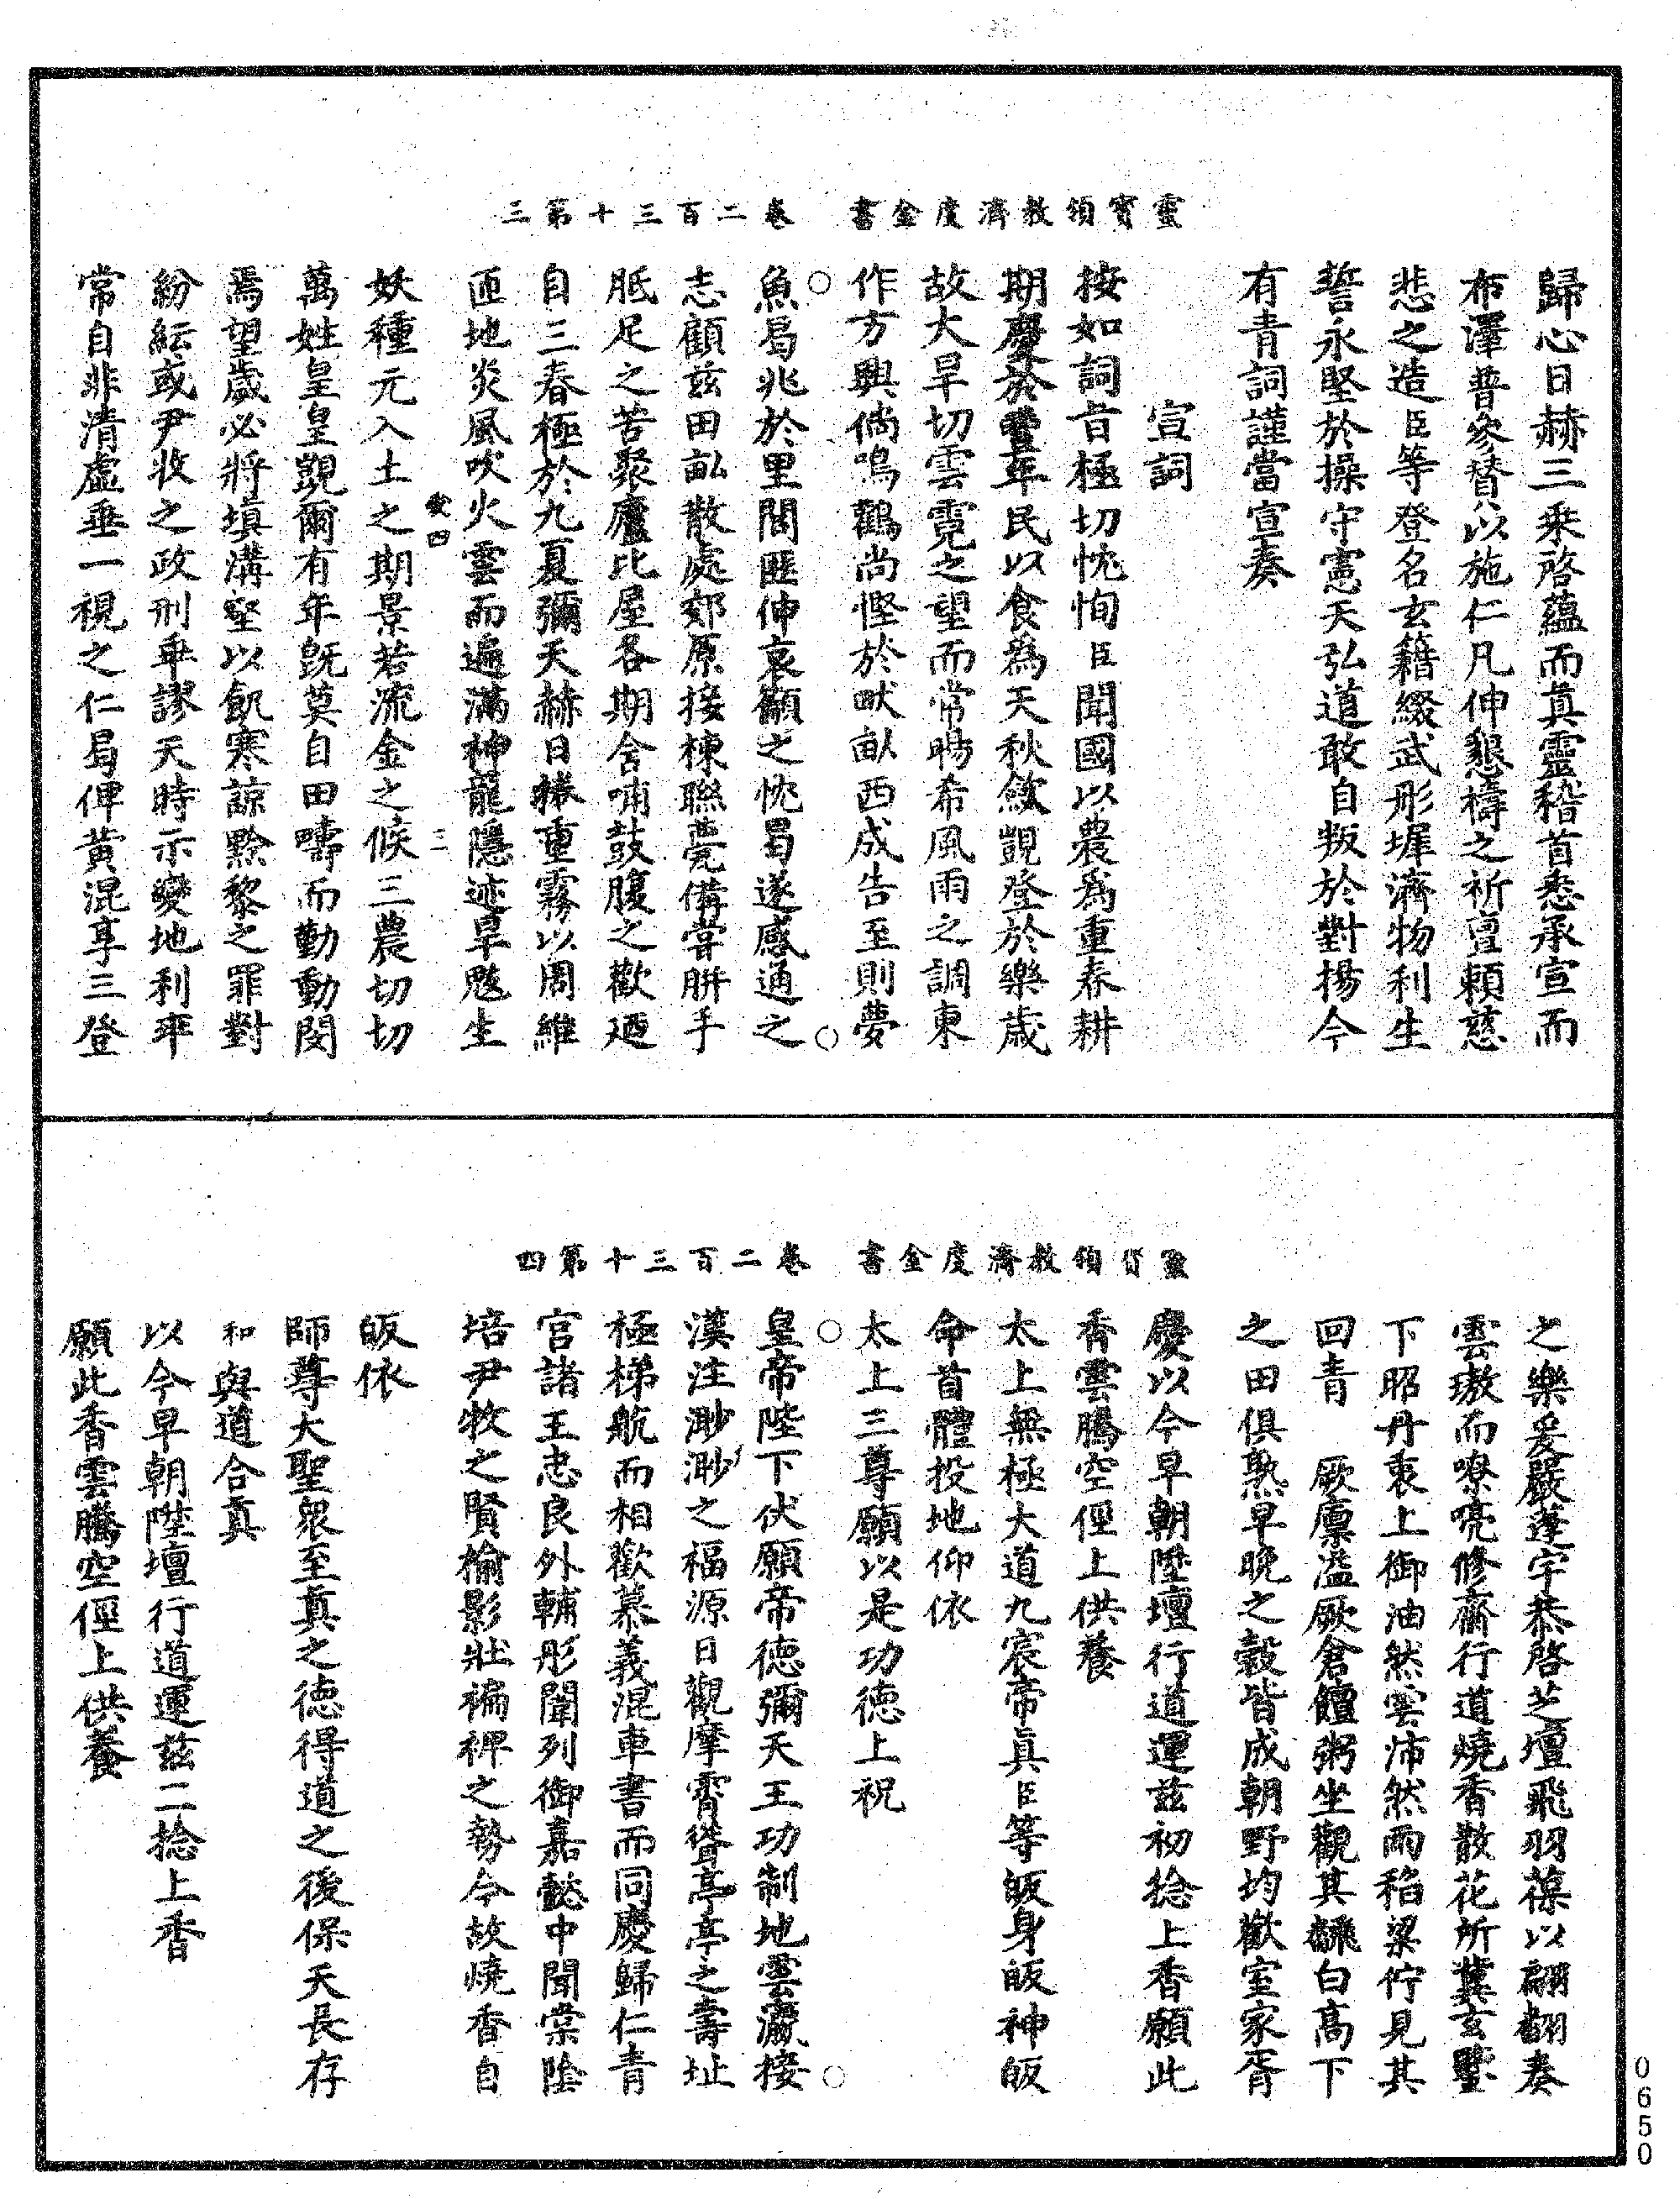 靈寶領教濟度金書　卷二百三十第三
歸心日赫三乘啓蘊而眞靈稽首悉承宣而
布澤普參贊以施仁凡伸懇禱之祈亶賴慈
悲之造臣等登名玄籍綴武彤墀濟物利生
誓永堅於操守憲天弘道敢自叛於對揚今
有青詞謹當宣奏
宣詞
按如詞旨極切忱恂臣聞國以農爲重春耕
期慶於豐年民以食爲天秋斂覬登於樂歲
故大旱切雲霓之望而常暘希風雨之調東
作方興倘鳴鸛尚慳於畎畝西成告至則夢
魚曷兆於里閭匪伸哀顲之忱曷遂感通之
志顧兹田畝散處郊原接棟聯甍備嘗胼手
胝足之苦聚廬比屋各期含哺鼓腹之歡廼
自三春極於九夏彌天赫日捲重霧以周維
匝地炎風吹火雲而遍滿神龍隱迹旱魃生
妖種元入土之期景若流金之候三農切切
二
萬姓皇皇覬爾有年旣莫自田疇而勤動閔
焉望歲必將塡溝壑以飢寒諒黔黎之罪對
紛紜或尹牧之政刑乖謬天時示變地利乖
常自非清虛垂一視之仁曷俾黃混享三登
靈寶領教濟度金書　卷二百三十第四
之樂爰嚴蓬宇恭啓芝壇飛羽葆以翩翻奏
雲璈而嘹亮修齋行道燒香散花所冀玄鑒
下昭丹衷上御油然雲沛然雨稻粱佇見其
回青　厥廩溢厥倉饘粥坐觀其飜白高下
之田俱熟早晚之穀皆成朝野均歡室家胥
慶以今早朝陞壇行道運兹初捻上香願此
香雲騰空徑上供養
太上無極大道九宸帝眞臣等皈身皈神皈
命首體投地仰依
太上三尊願以是功德上祝
皇帝陛下伏願帝德彌天王功制地雲瀛接
漢注渺渺之福源日觀摩霄聳亭亭之壽址
極梯航而相歡慕義混車書而同慶歸仁青
宮諸王忠良外輔彤闈列御嘉懿中聞棠陰
培尹牧之賢榆影壯褊裨之勢今故燒香自
皈依
師尊大聖衆至眞之德得道之後保天長存
和與道合眞
以今早朝陞壇行道運兹二捻上香
願此香雲騰空徑上供養
0650